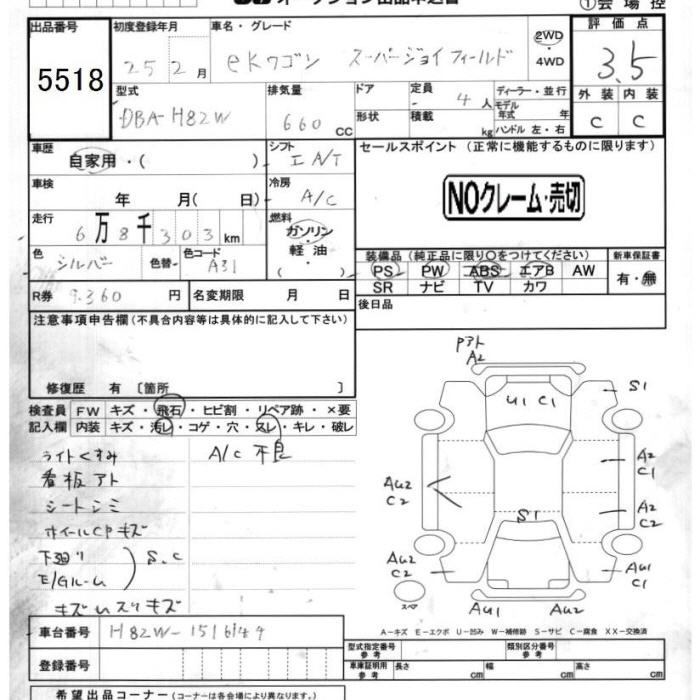 ①会場控
出品番号
5518
初度登録年月
25 2月
車名・グレード
eKワゴン スーパージョイフィールド
2WD
・
4WD
評価点
3.5
外装 内装
C C
型式
DBA-H82W
排気量
660 CC
ドア
形状
定員
4人
積載
kg
ディーラー・並行
モデル
年式 年
ハンドル 左・右
車歴
自家用・( )
シフト
I A/T
セールスポイント (正常に機能するものに限ります)
NOクレーム・売切
車検
年 月( 日)
冷房
A/C
走行
6万8千303km
燃料
ガソリン
軽油
・( )
色
シルバー
色替
色コード
A31
装備品(純正品に限り○をつけてください)
新車保証書
PS PW ABS エアB AW
SR ナビ TV カワ
有・無
R券 9.360円
名変期限 月 日
後日品
注意事項申告欄(不具合内容等は具体的に記入して下さい)
修復歴 有 〔箇所 〕
検査員
記入欄
FW キズ・飛石・ヒビ割・リペア跡・×要
内装 キズ・汚レ・コゲ・穴・スレ・キレ・破レ
ライトくすみ
A/C 不良
看板アト
シートシミ
ホイールCPキズ
下廻り
E/Gルーム
S.C
キズ いスリキズ
Pアト
A2
U1 C1
S1
A2
C1
AU2
C2
A2
C2
S1
AU2
C2
AU1
C1
スペア
AU1 AU2
A-キズ E-エクボ U-凹み W-補修跡 S-サビ C-腐食 XX-交換済
車台番号
H82W-1516144
登録番号
型式指定番号
参考
類別区分番号
参考
車庫証明用
参考
長さ cm
幅 cm
高さ cm
希望出品コーナー(出品コーナーは各会場により異なります。)